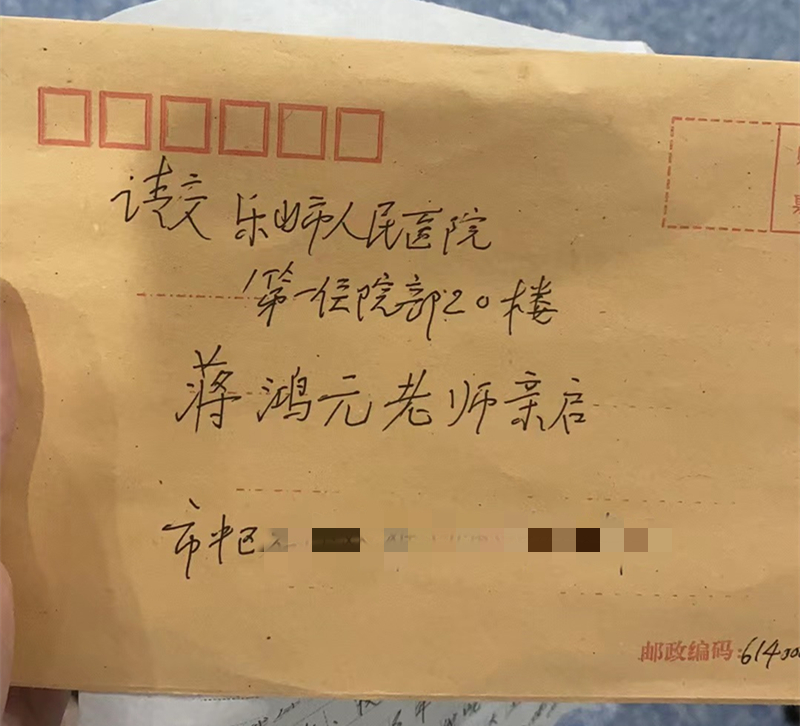 请交乐山市人民医院
第一住院部20楼
蒋鸿元老师亲启
市中区
邮政编码:614300